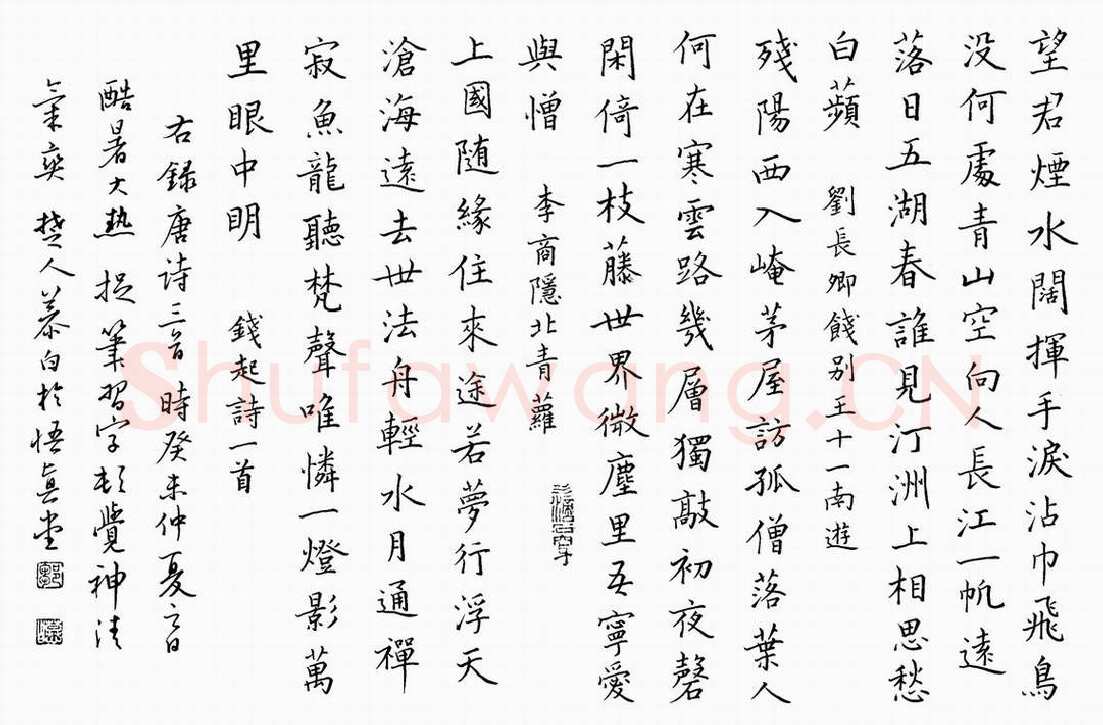 望君煙水闊揮手淚沾巾飛鳥
没何處青山空向人長江一帆遠
落日五湖春誰見汀洲上相思愁
白蘋 劉長卿餞别王十一南遊
殘陽西入崦茅屋訪孤僧落葉人
何在寒雲路幾層獨敲初夜磬
閑倚一枝藤世界微塵里吾寧愛
與憎 李商隱北青蘿
上國随緣住來途若夢行浮天
滄海遠去世法舟輕水月通禪
寂魚龍聽梵聲唯憐一燈影萬
里眼中明 錢起詩一首
右録唐诗三首時癸未仲夏言日
酷暑大热捉筆習字頓覺神清
氣爽 楚人慕白於悟真堂
Shufawang.CN